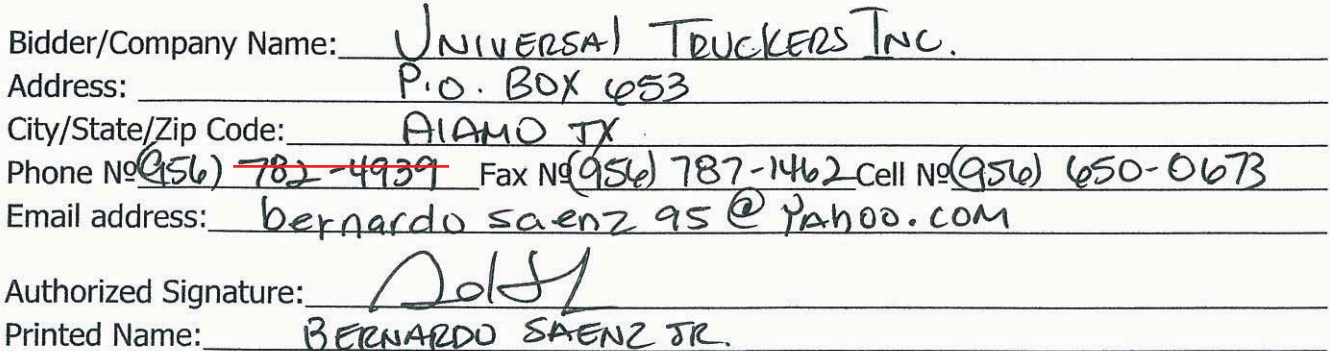 Bidder/Company Name: UNIVERSAL TRUCKERS INC.
Address: P.O. BOX 653
City/State/Zip Code: ALAMO TX
Phone Nº (956) 782-4939 Fax Nº (956) 787-1462 Cell Nº (956) 650-0673
Email address: bernardo saenz 95 @ YAhoo.com
Authorized Signature:
Printed Name: BERNARDO SAENZ JR.